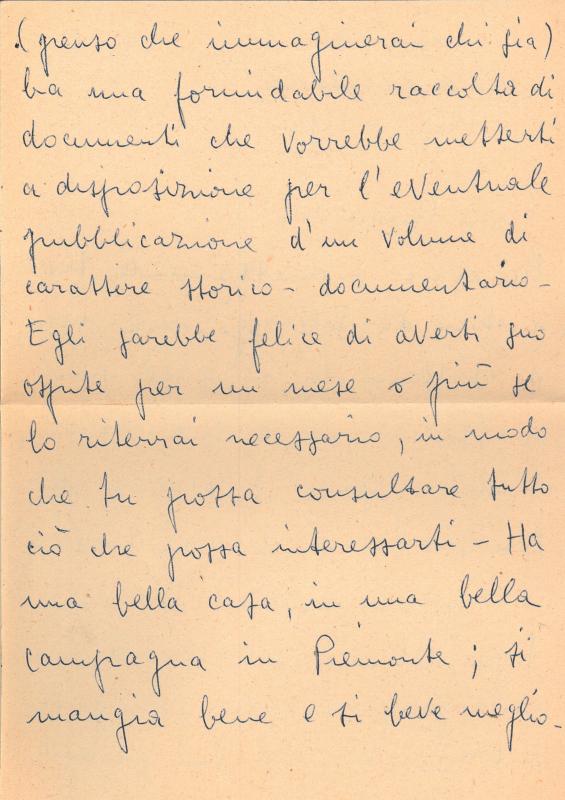 (penso che immaginerai chi sia)
ha una formidabile raccolta di
documenti che vorrebbe metterti
a disposizione per l'eventuale
pubblicazione d'un volume di
carattere storico - documentario -
Egli sarebbe felice di averti suo
ospite per un mese o più se
lo riterrai necessario, in modo
che tu possa consultare tutto
ciò che possa interessarti - Ha
una bella casa, in una bella
campagna in Piemonte; si
mangia bene e si beve meglio -